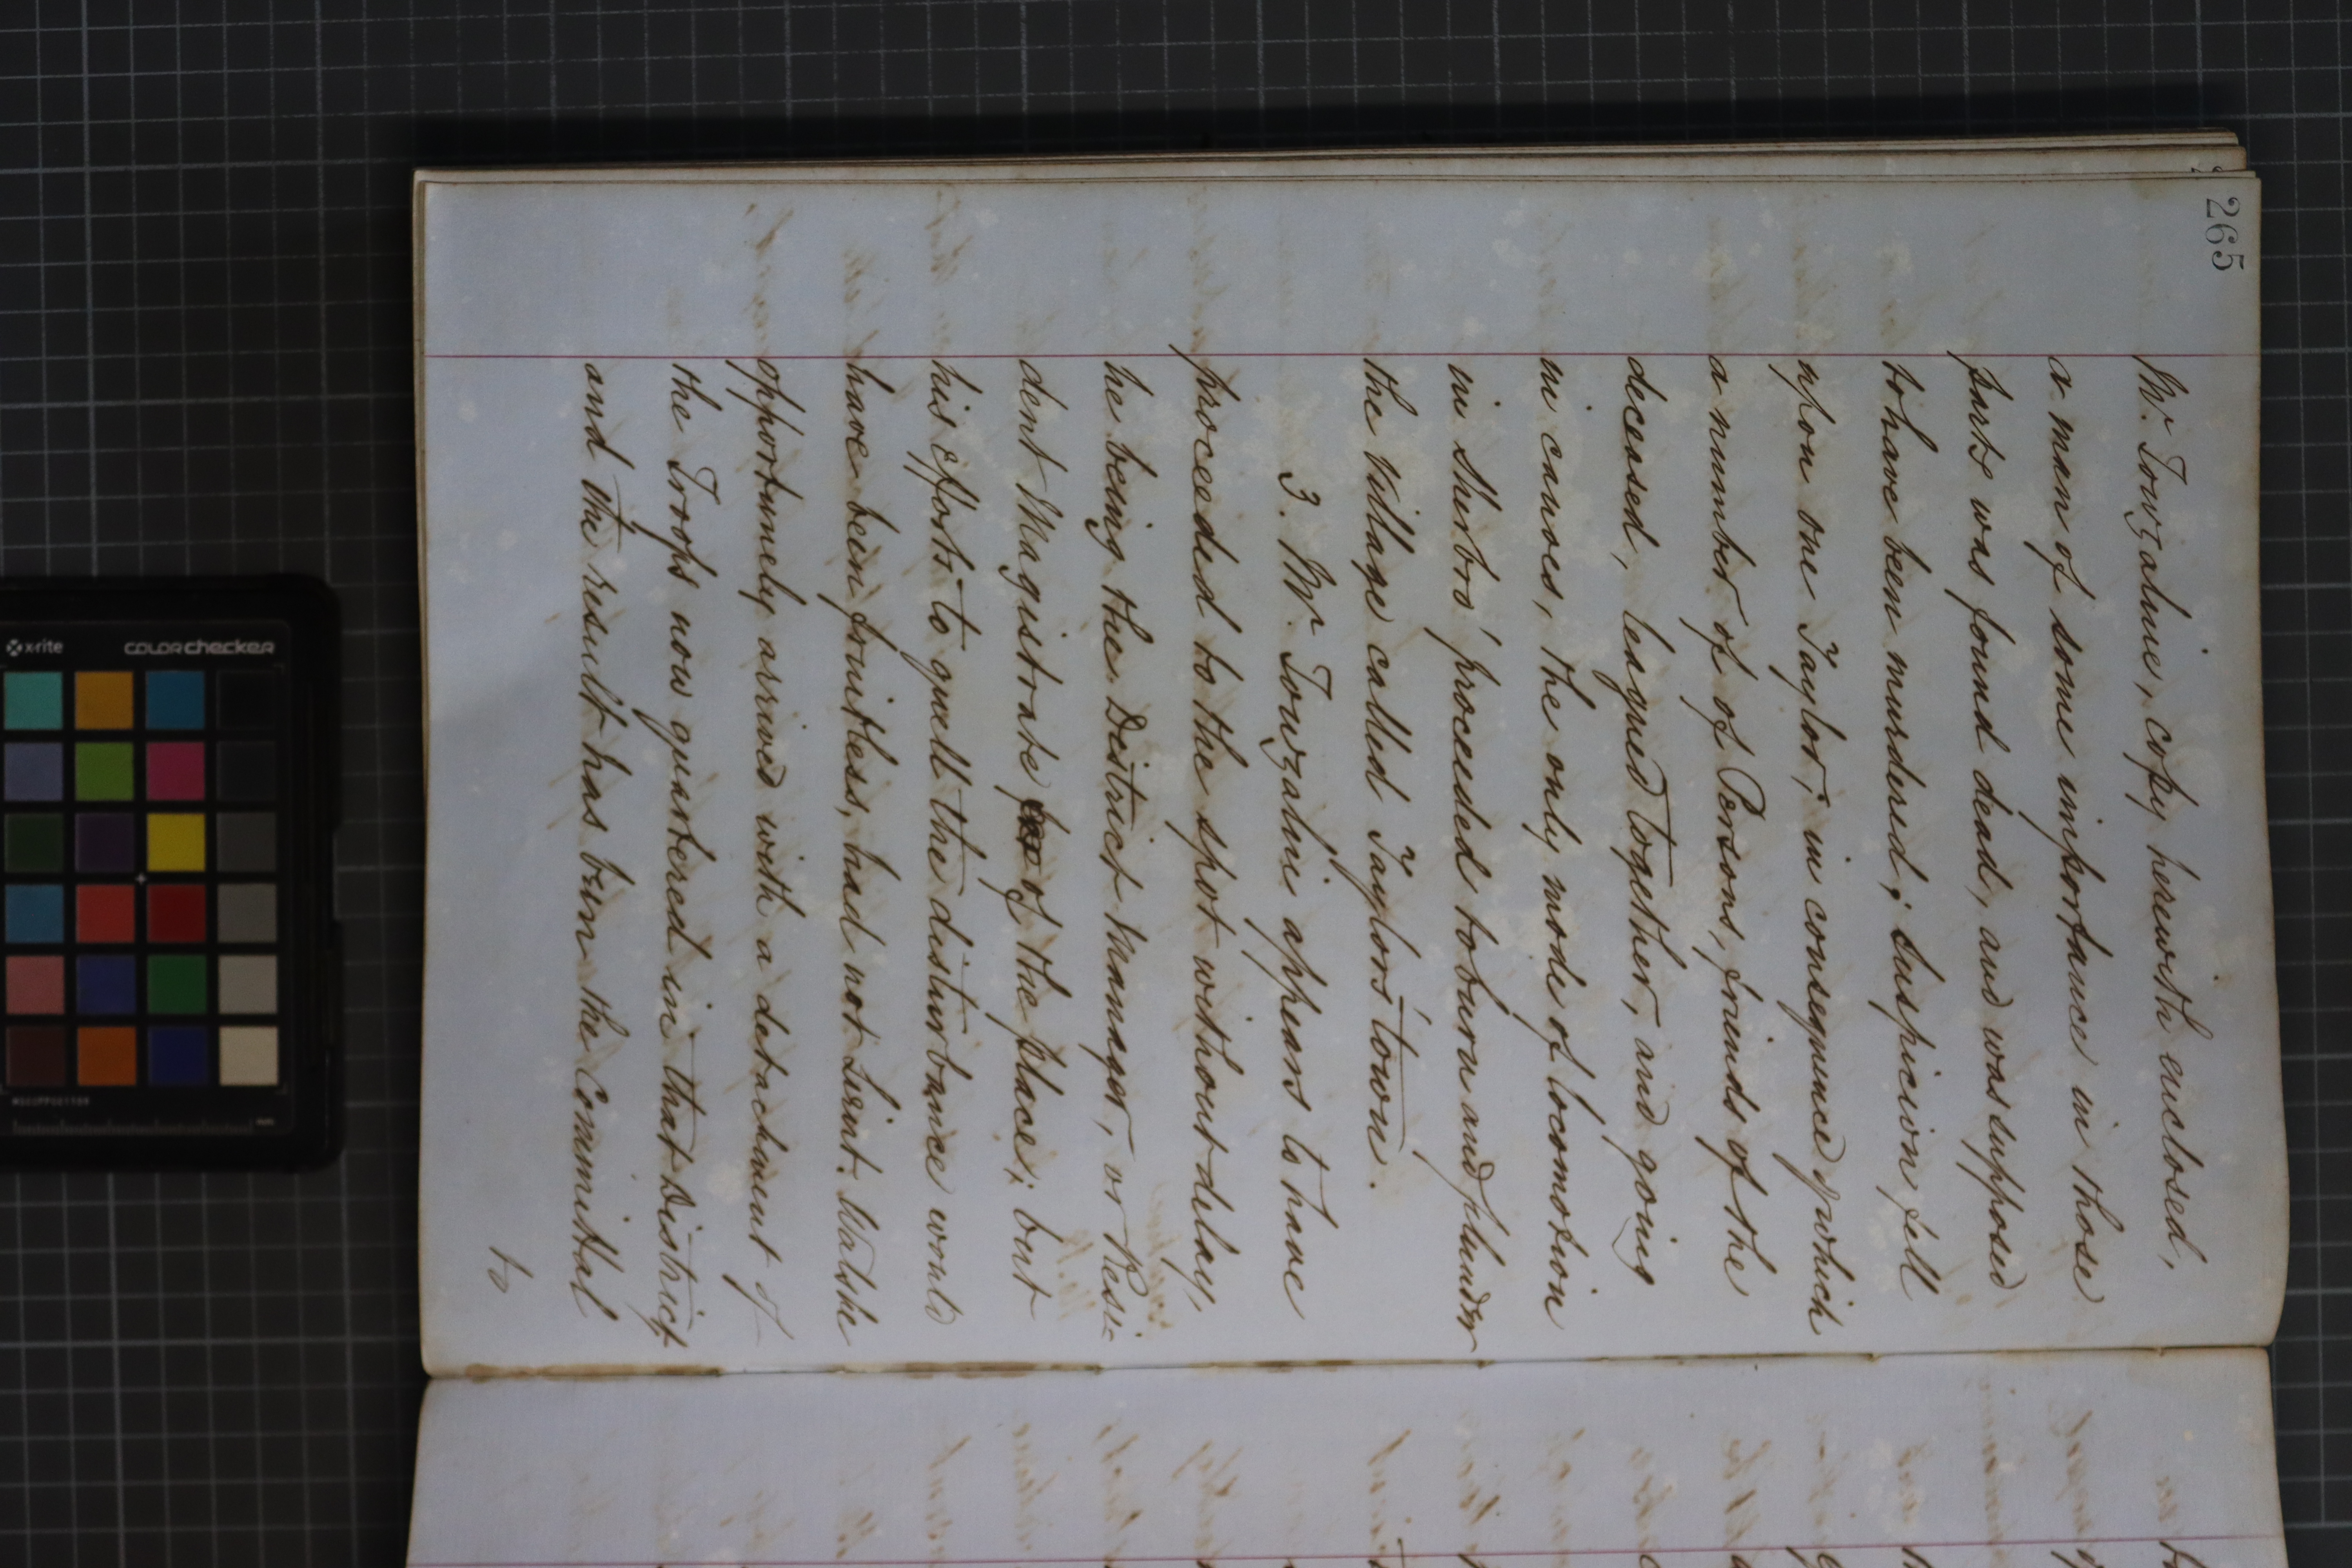 265
Mr. Towzalnie, copy herewith enclosed,
a man of some importance in those
parts was found dead, and was supposed
to have been murdered; suspicion fell
upon one Taylor; in consequence of which
a number of of Persons, friends of the
deceased, leagued together, and going
in canoes, the only mode of locomotion
in Sherbro' proceeded to burn and plunder
the village called Taylors'town.
3. Mr. Towzalnie appears to have
proceeded to the spot without delay,
he being the District Manager, or Resi-
dent Magistrate of the place; but
his efforts to quell the disturbance would
have been fruitless, had not Lieut. Walshe
opportunely arrived with a detachment of
the Troops now quartered in that District
and the result has been the Committal
to
x-rite colorchecker